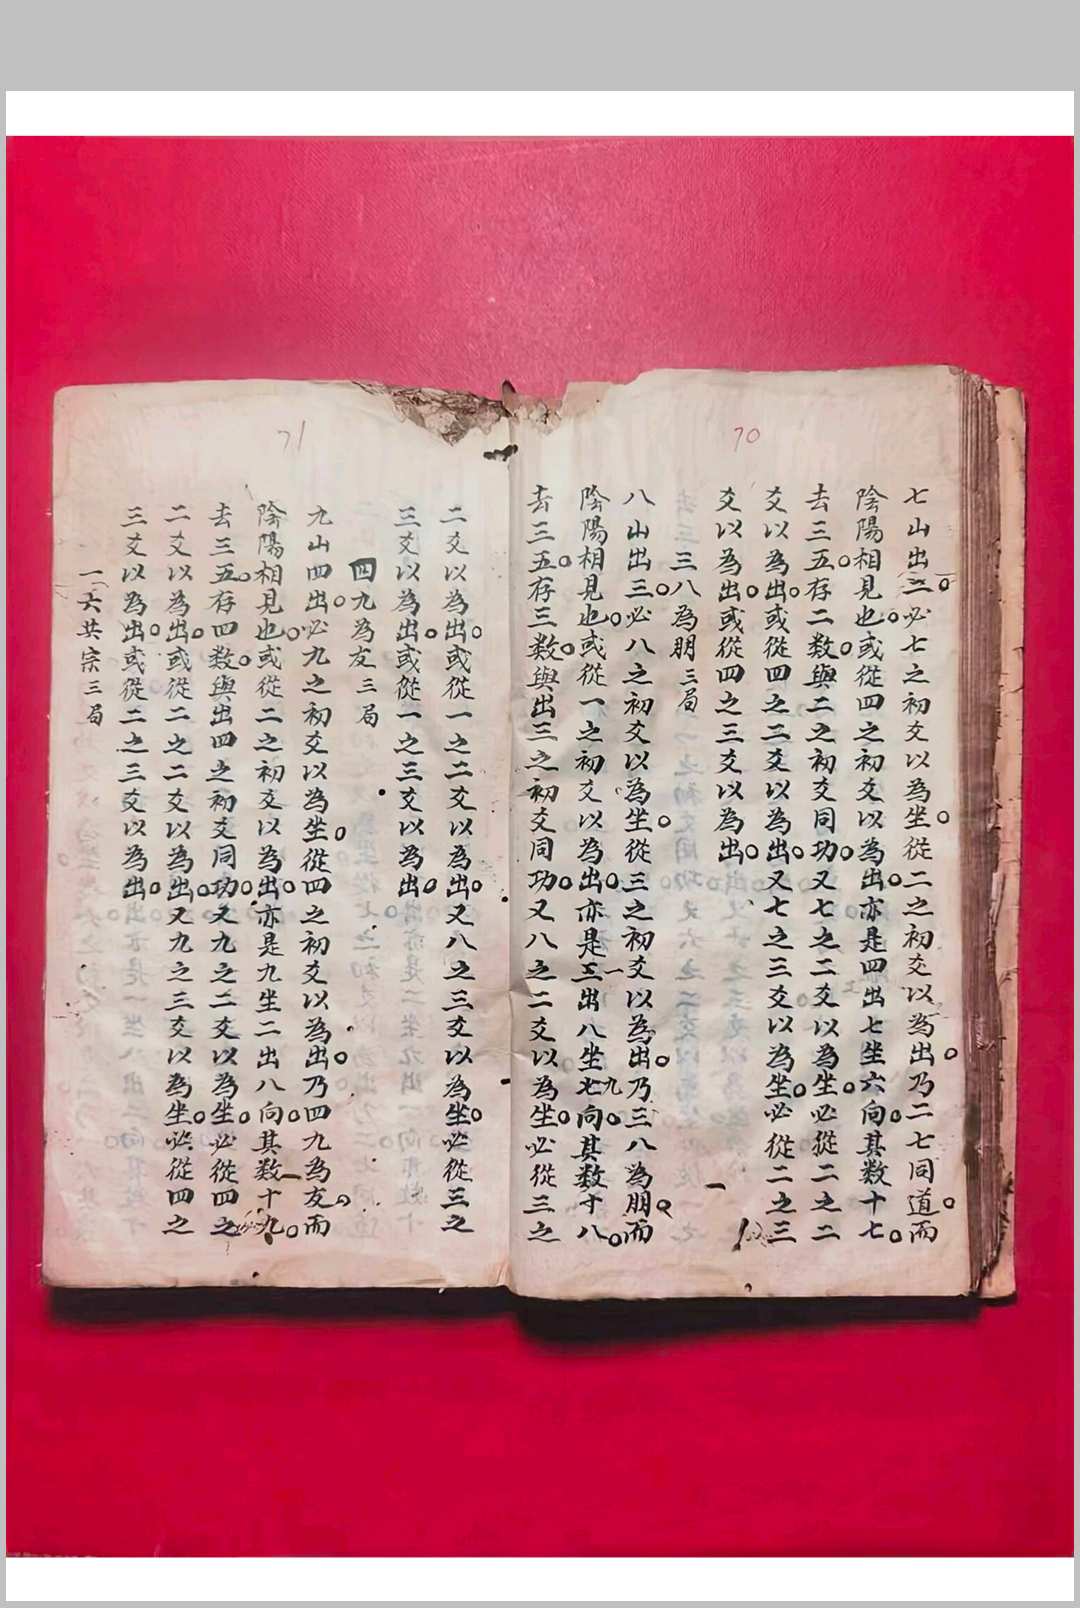 70
七山出二。必七之初爻以為坐。從二之初爻以為出。乃二七同道。而
陰陽相見也。或從四之初爻以為出。亦是四出七坐六向。其數十七。
去三五。存二數。與二之初爻同功。又七之二爻以為坐。必從二之二
爻以為出。或從四之二爻以為出。又七之三爻以為坐。必從二之三
爻以為出。或從四之三爻以為出。
三八為朋三局
八山出三。必八之初爻以為坐。從三之初爻以為出。乃三八為朋。而
陰陽相見也。或從一之初爻以為出。亦是一出八坐九向。其數十八。
去三五。存三數。與出三之初爻同功。又八之二爻以為坐。必從三之
71
二爻以為出。或從一之二爻以為出。又八之三爻以為坐。必從三之
三爻以為出。或從一之三爻以為出。
四九為友三局
九山四出。必九之初爻以為坐。從四之初爻以為出。乃四九為友。而
陰陽相見也。或從二之初爻以為出。亦是九坐二出八向。其數十九。
去三五。存四數。與出四之初爻同功。又九之二爻以為坐。必從四之
二爻以為出。或從二之二爻以為出。又九之三爻以為坐。必從四之
三爻以為出。或從二之三爻以為出。
一六共宗三局